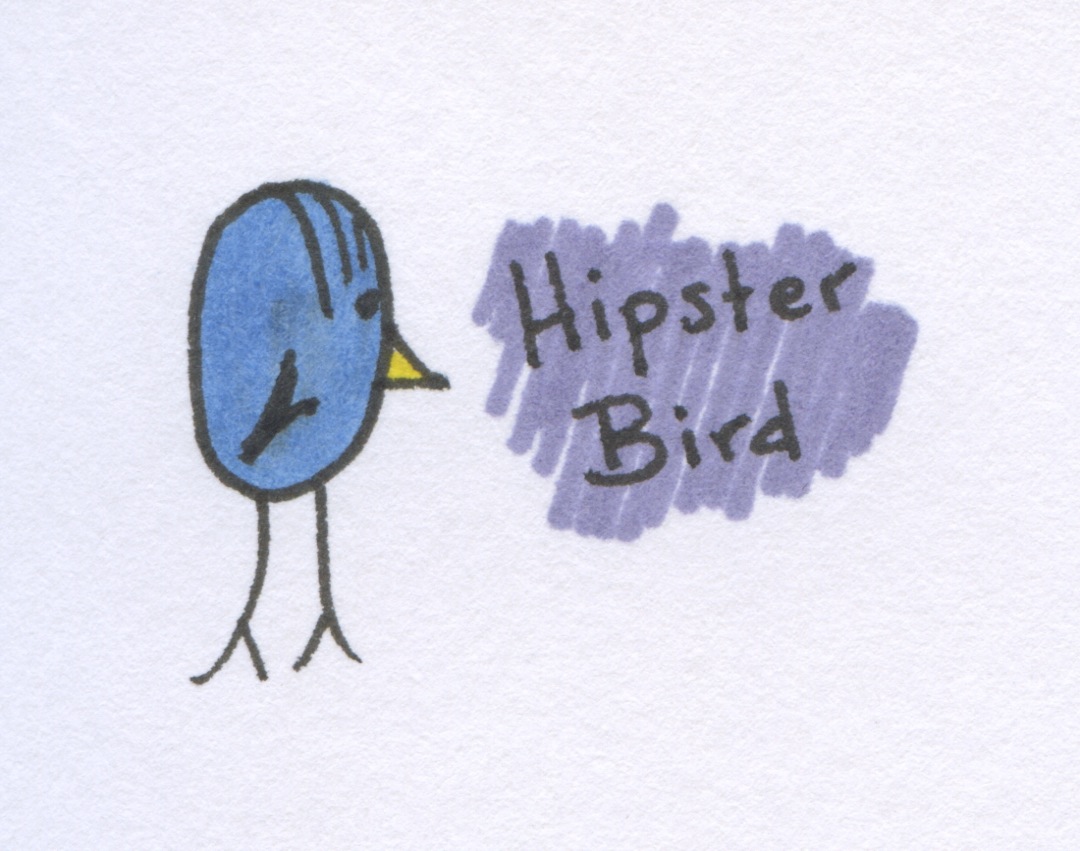 Hipster
Bird